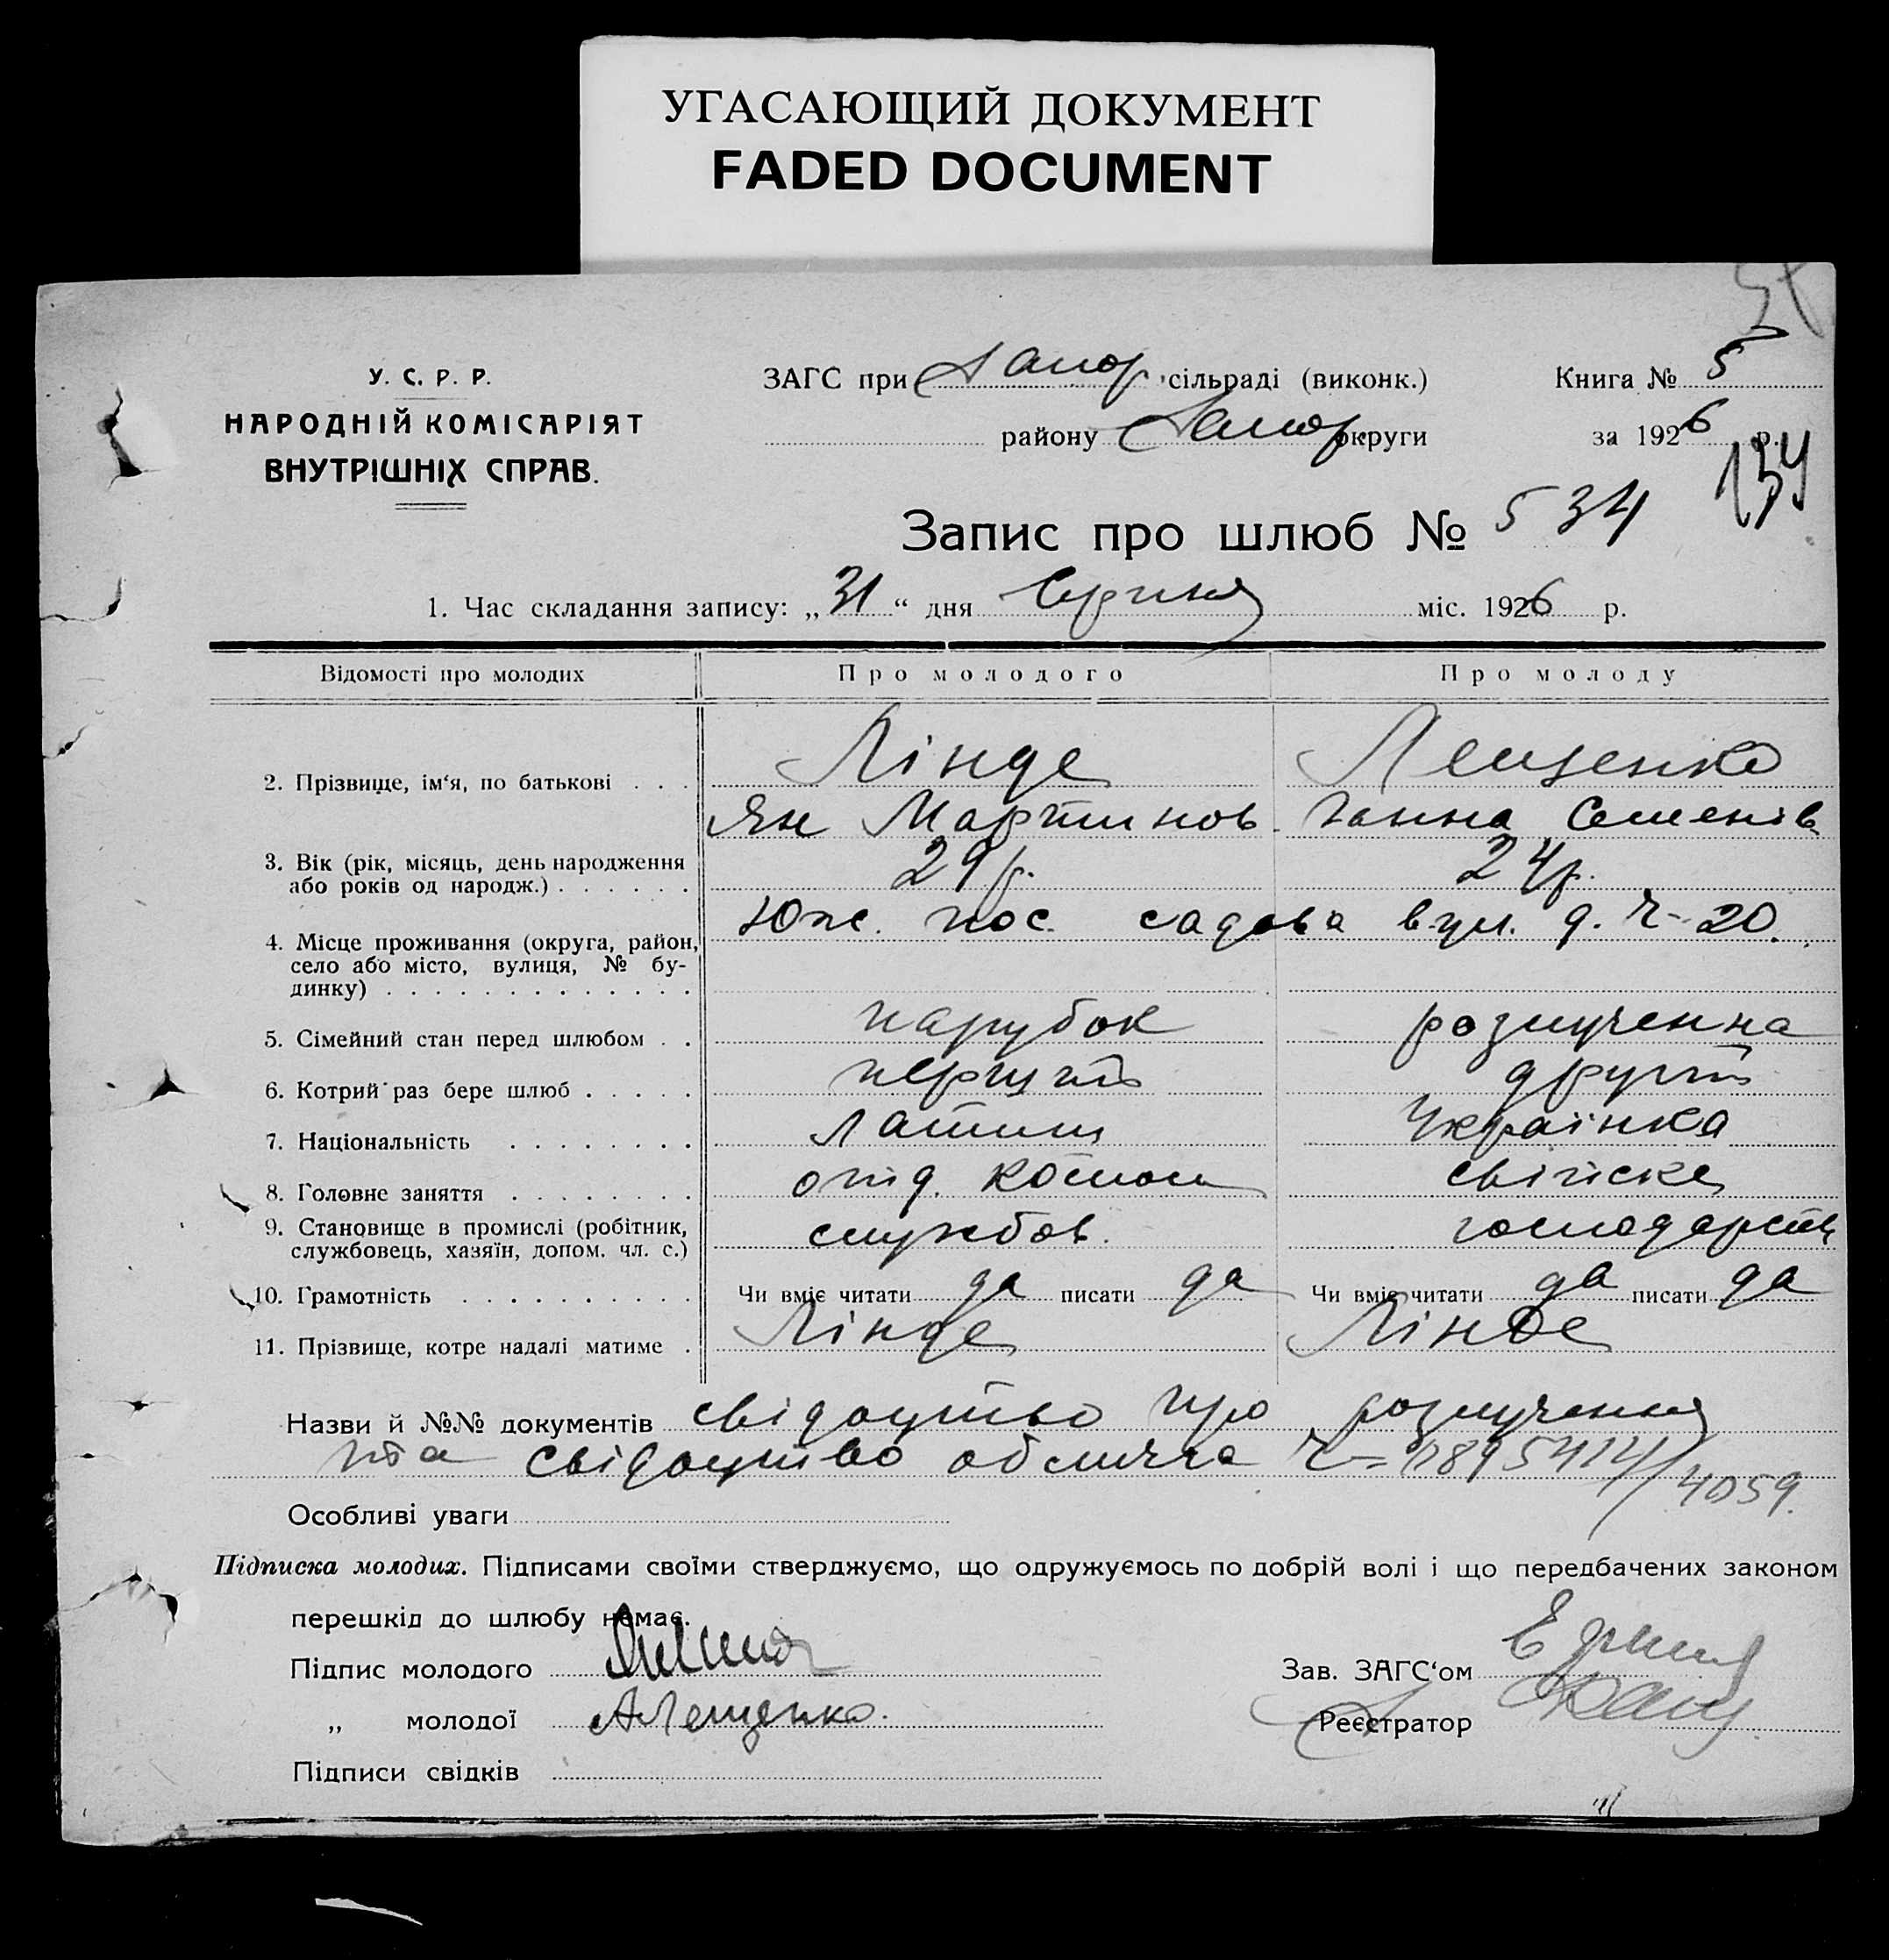 УГАСАЮЩИЙ ДОКУМЕНТ
FADED DOCUMENT
У. С. Р. Р.
НАРОДНІЙ КОМІСАРІЯТ
ВНУТРІШНІХ СПРАВ.
ЗАГС при Запор. сільраді (виконк.)
Книга № 5
району Запор. округи
за 1926 р.
134
Запис про шлюб № 534
1. Час складання запису: „31“ дня Серпня міс. 1926 р.
Відомості про молодих Про молодого Про молоду
2. Прізвище, ім‘я, по батькові . . . Лінде Лещенко
Ян Мартинов. Ганна Семенів
3. Вік (рік, місяць, день народження
або років од народж.) . . . . . . 29 р. 24 р.
4. Місце проживання (округа, район, Юж. пос. садова вул. д. ч- 20.
село або місто, вулиця, № бу-
динку) . . . . . . . . . . . . .
5. Сімейний стан перед шлюбом . . парубок розлученна
6. Котрий раз бере шлюб . . . . . перший другий
7. Національність . . . . . . . . латиш Українка
8. Головне заняття . . . . . . . . свійске
9. Становище в промислі (робітник, службов. господарств
службовець, хазяїн, допом. чл. с.)
10. Грамотність . . . . . . . . . . Чи вміє читати да писати да Чи вміє читати да писати да
11. Прізвище, котре надалі матиме . Лінде Лінде
Назви й №№ документів свідоцтво про розлучення
та свідоцтво обличча ч= 4059.
Особливі уваги
Підписка молодих. Підписами своїми стверджуємо, що одружуємось по добрій волі і що передбачених законом
перешкід до шлюбу немає.
Підпис молодого
Зав. ЗАГС‘ом
„ молодої АЛещенко.
Реєстратор
Підписи свідків